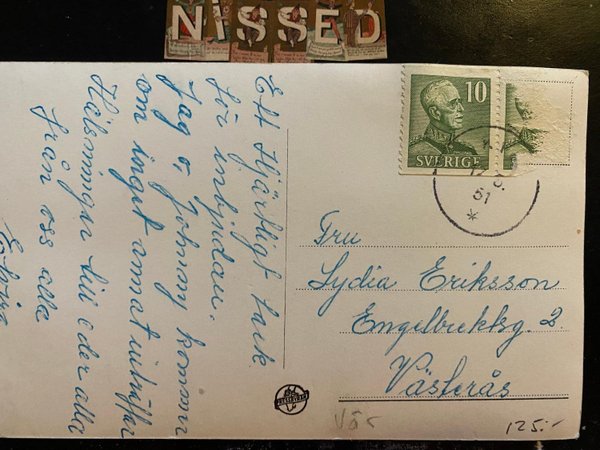 NiSSED
Ett Hjärtligt tack
för inbjudan.
Jag o Johnny kommer
om inget annat inträffar
Hälsningar till eder alla
från oss alla
10
SVERIGE
51
Fru
Lydia Eriksson
Engelbrektsg. 2
Västerås
125:-